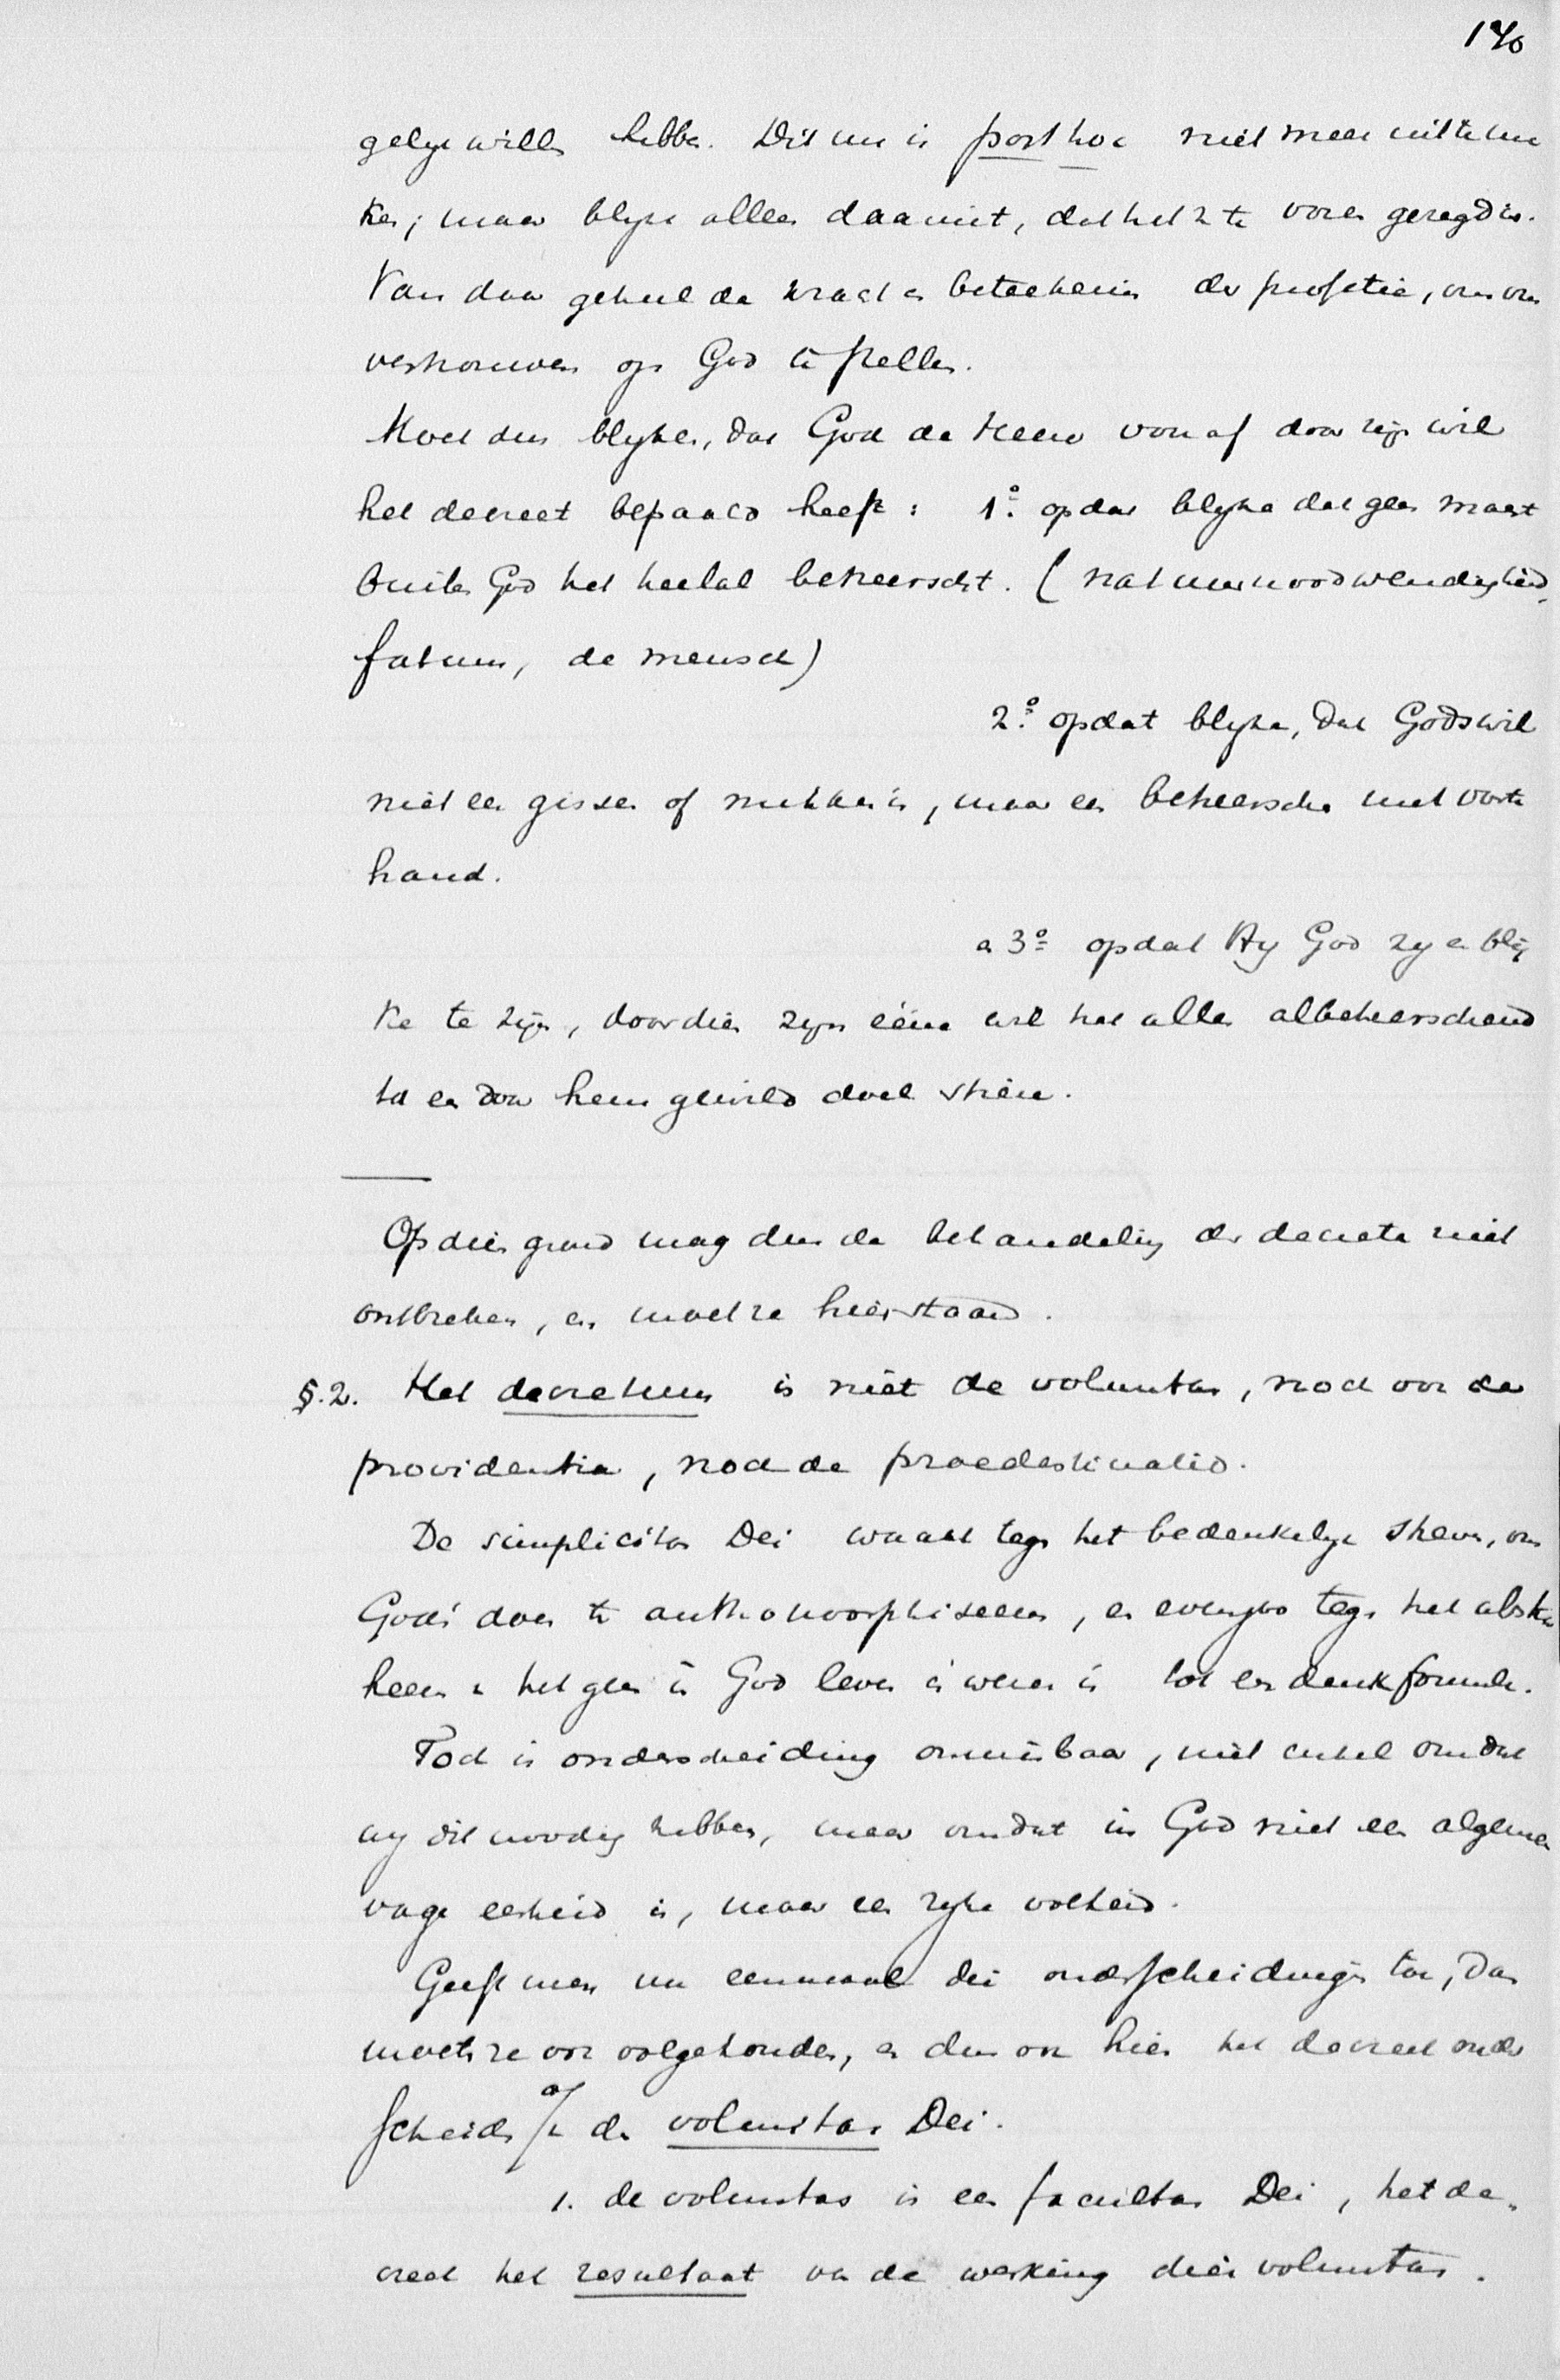 140
gelyk willen hebben. Dit nu is post hoc niet meer uit te ma
ken; maar blykt alleen daaruit, dat het v te voren gezegd is.
Van daar geheel de kracht en beteekenis der profetie, om ons
vertrouwen op God te stellen.
Moet dus blyken, dat God de Heere vooraf door zijn wil
het decreet bepaald heeft: 1º. opdat blyke dat geen macht
buiten God het heelal beheerscht. (natuurnoodwendigheid,
fatum, de mensch)
2º. opdat blyke, dat Gods wil
niet een gissen of mikken is, maar een beheerschen met vaste
hand.
en 3º opdat Hy God zy en blij
ke te zijn, doordien zyn ééne wil het alles albeheerschend
tot een door hem gewild doel stiere.
Op dien grond mag dus de behandeling der decreta niet
ontbreken, en moet ze hier staan.
§.2. Het decretum is niet de voluntas, noch ook de
providentia, noch de praedestinatio.
De simplicitas Dei waakt tegen het bedenkelyk streven, om
Gods doen te anthropomorphiseeren, en evenzoo tegen het abstra
heeren v hetgeen in God leven en wezen is tot een denkformule.
Toch is onderscheiding onmisbaar, niet enkel omdat
wy dit noodig hebben, maar omdat in God niet een algemeen
vage eenheid is, maar een ryke volheid.
Geeft men nu eenmaal die onderscheidingen toe, dan
moeten ze ook volgehouden, en dus ook hier het decreet onder
scheiden v/ de voluntas Dei.
1. de voluntas is een facultas Dei, het de-
creet het resultaat van de werking dier voluntas.